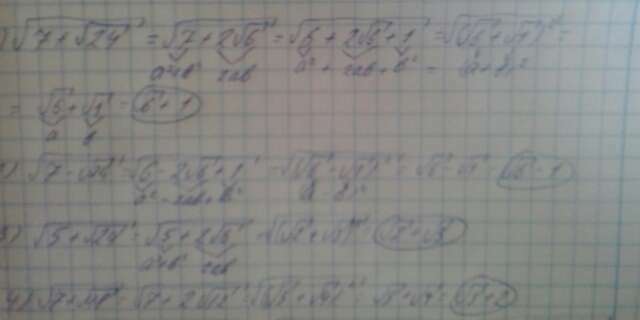 ) √(7+√24) = √(7+2√6) = √(6+2√6+1) = √((√6+√1)²) =
a²+b² 2ab a² + 2ab + b² = (a+b)²
= √6+√1 = √6+1
a b
) √(7-√24) = √(6-2√6+1) = √((√6-√1)²) = √6-√1 = √6-1
a²-2ab+b² (a-b)²
3) √(5+√24) = √(5+2√6) = √((√2+√3)²) = √2+√3
a²+b² 2ab
4) √(7+√48) = √(7+2√12) = √((√3+√4)²) = √3+√4 = √3+2